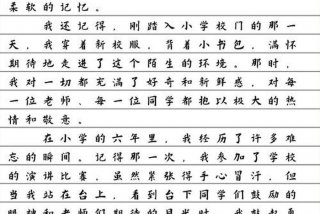 柔软的记忆。
我还记得，刚踏入小学校门的那一
天，我穿着新校服，背着小书包，满怀
期待地走进了这个陌生的环境。那时，
我对一切都充满了好奇和新鲜感，对每
一位老师、每一位同学都抱以极大的热
情和敬意。
在小学的六年里，我经历了许多难
忘的瞬间。记得那一次，我参加了学校
的演讲比赛，虽然紧张得手心冒汗，但
当我站在台上，看到台下同学们鼓励的
眼神和老师们期待的目光时，我鼓起勇